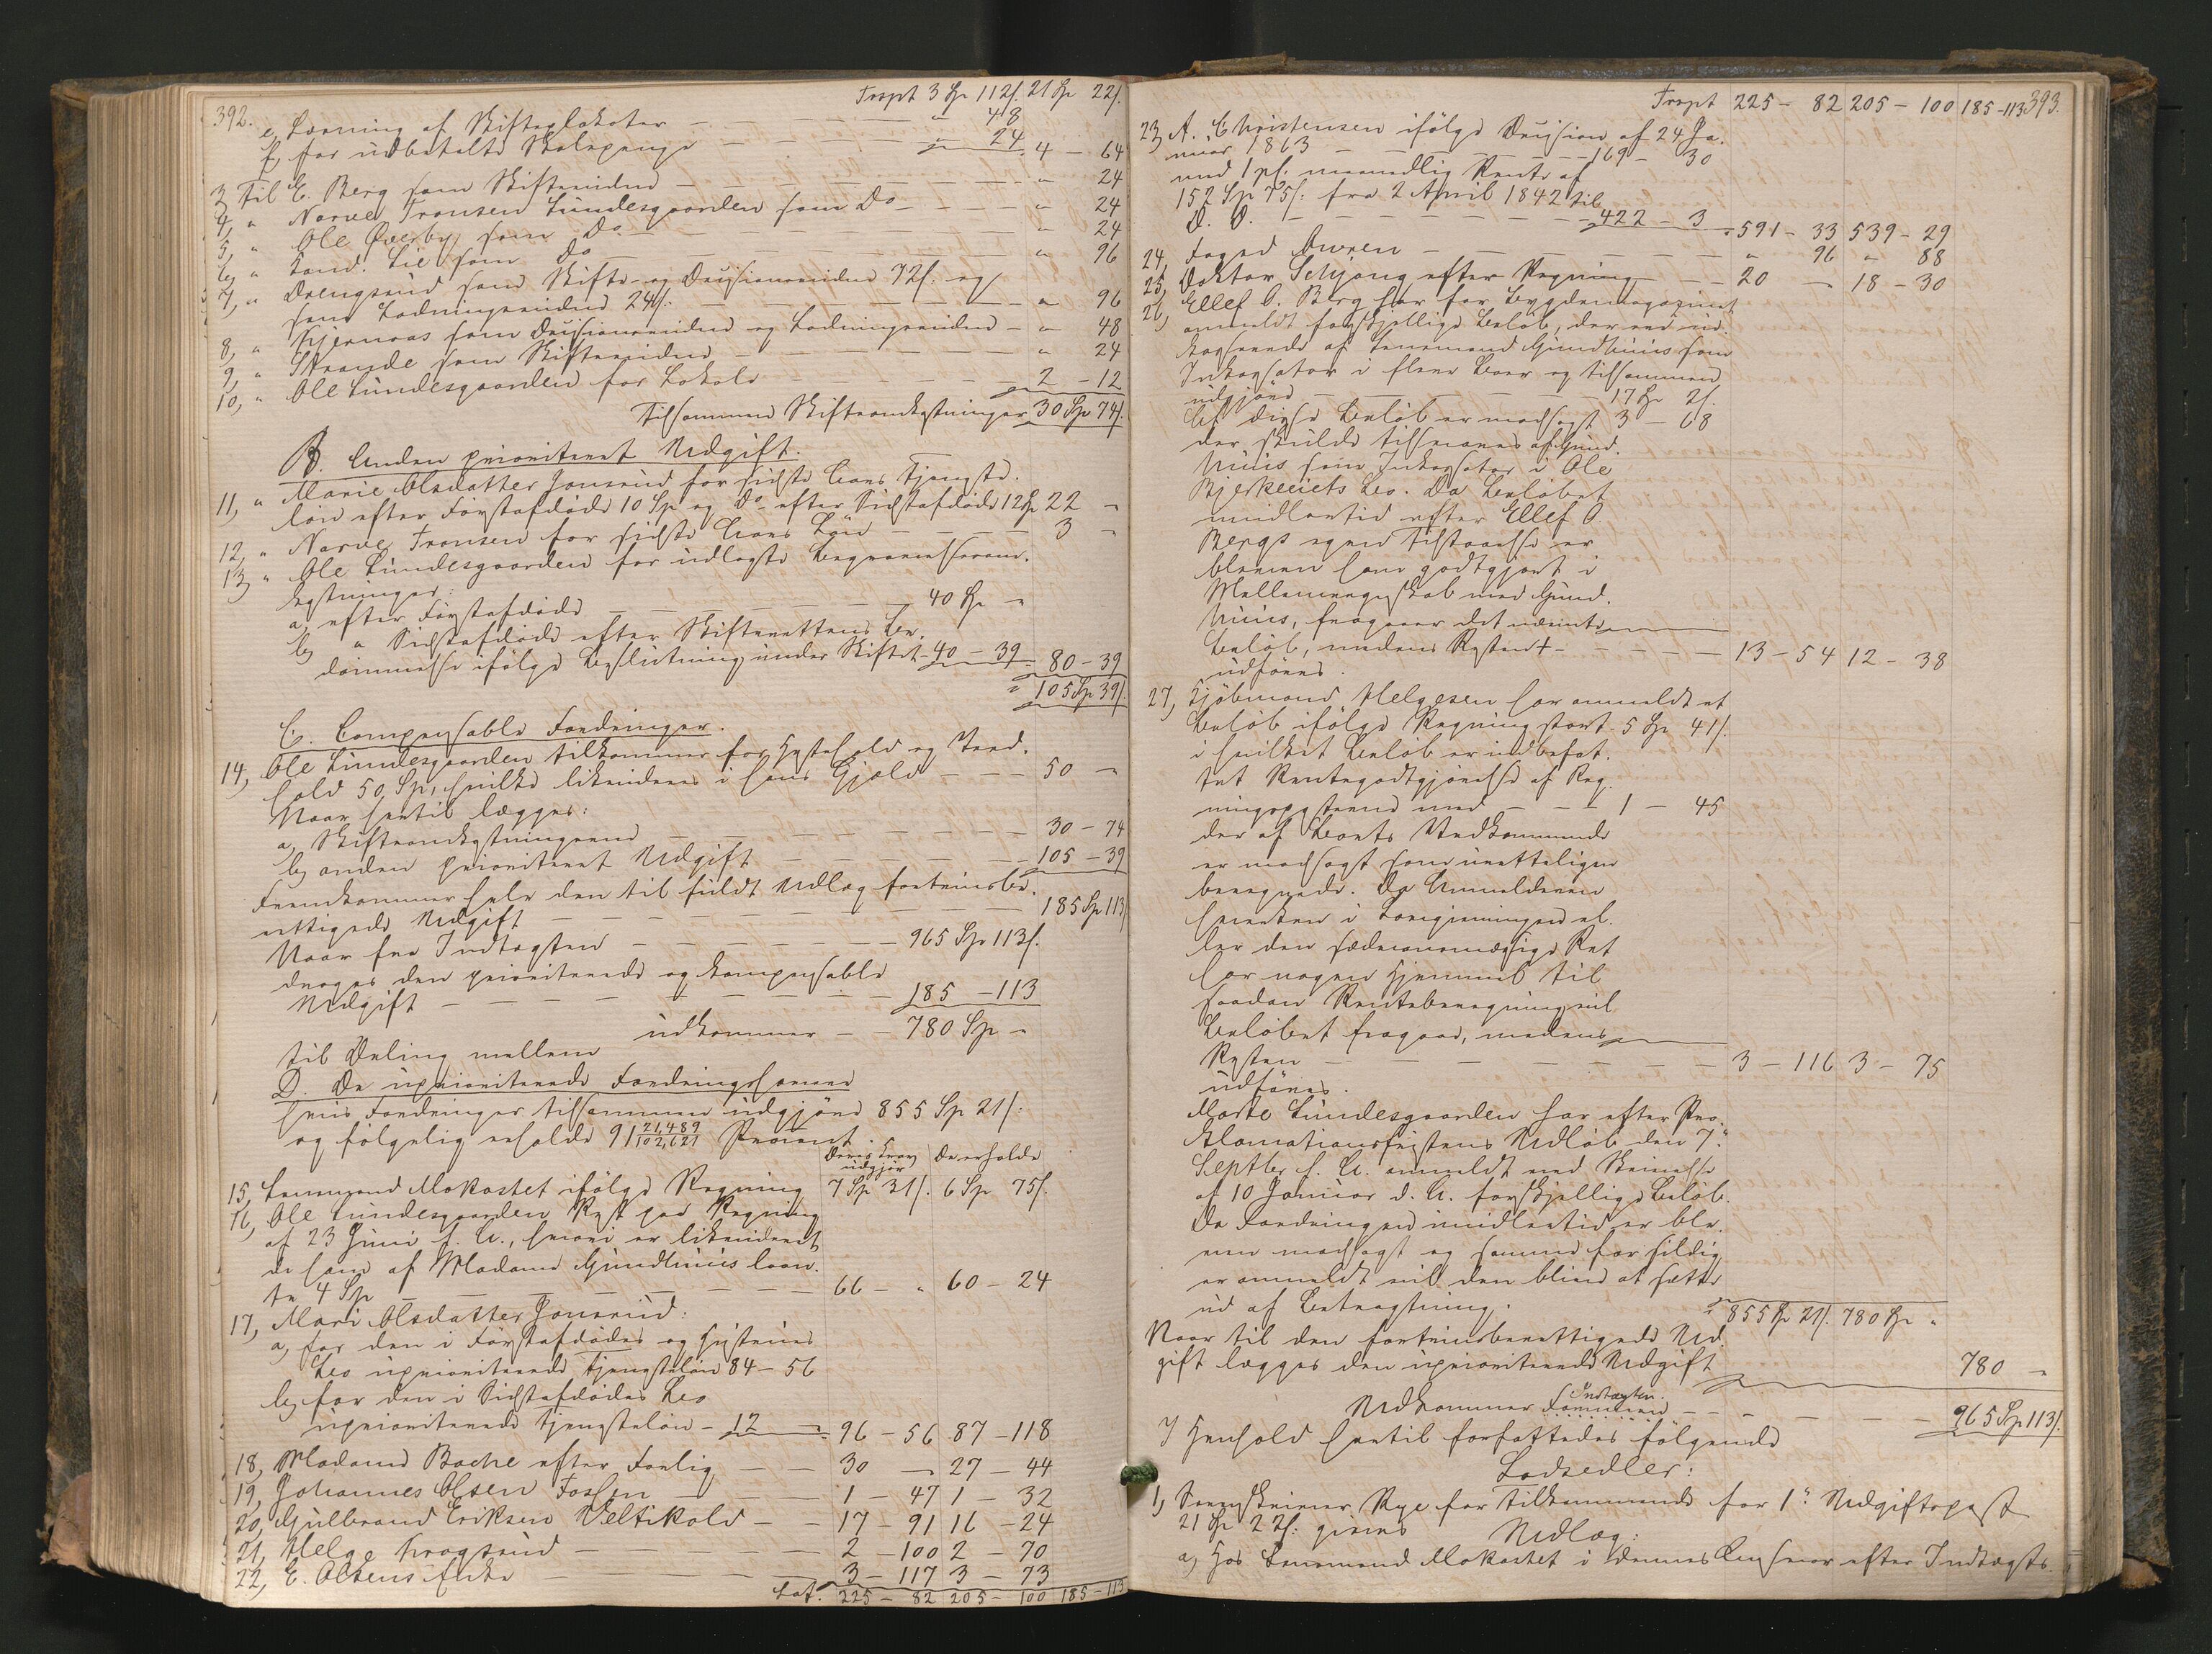 392.
Trspt 3 Sp 112 s. 21 Sp 22 s.
e, Læsning af Skifteplakater — — — " 48
f, for udbetalte Skolepenge — — — " 24 4 - 64
3, Til E. Berg som Skiftevidne — — — " 24
4, " Narve Tronsen Lundesgaarden som Do — — — " 24
5, " Ole Qværby som Do — — — " 24
6, " Cand. Lie som Do — — — " 96
7, " Drengsrud som Skifte- og Decisionsvidne 72 s. og
som Lodningsvidne 24 s: — — — " 96
8, " Skjernaas som Decisionsvidne og Lodningsvidne — " 48
9, " Strande som Skiftevidne — — — " 24
10, " Ole Lundesgaarden for Lokale — — — 2 - 12
Tilsammen Skifteomkostninger 30 Sp 74 s.
B. Anden prioriteret Udgift.
11, " Marie Olsdatter Jonsrud for sidste Aars Tjeneste-
løn efter Førstafdøde 10 Sp og Do efter Sidstafdøde 12 Sp 22 "
12, " Narve Tronsen for sidste Aars Løn — — — 3 "
13, " Ole Lundesgaarden for udlagte Begravelsesom-
kostninger:
a, efter Førstafdøde — — — 40 Sp "
b, " Sidstafdøde efter Skifterettens Be-
dømmelse ifølge Beslutning under Skiftet 40 - 39 80 - 39
105 Sp 39 s.
C. Compensable Fordringer.
14, Ole Lundesgaarden tilkommer for Hestehold og Vand-
hold 50 Sp, hvilke likvideres i hans Gjæld — — — 50 "
Naar hertil lægges:
a, Skifteomkostningerne — — — 30 - 74
b, anden prioriteret Udgift — — — 105 - 39
Fremkommer hele den til fuldt Udlæg fortrinsbe-
rettigede Udgift — — — 185 Sp 113 s
Naar fra Indtægten — — — 965 Sp 113 s.
drages den prioriterede og kompensable
Udgift — — — 185 - 113
udkommer — — 780 Sp "
til Deling mellem
D. De uprioriterede Fordringshavere
hvis Fordringer tilsammen udgjøre 855 Sp 21 s:
og følgelig erholde 91 21,489/102,621 Procent.
Deres Krav udgjør De erholde
15, Lensmand Mokastet ifølge Regning 7 Sp 31 s. 6 Sp 75 s.
16, Ole Lundesgaarden Rest paa Regning
af 23 Juni f. A., hvori er likvideret
de ham af Madame Gundhuus laan-
te 4 Sp — — — 66 - " 60 - 24
17, Mari Olsdatter Jonsrud:
a, for den i Førstafdødes og Hustrues
Bo uprioriterede Tjenesteløn 84 - 56
b, for den i Sidstafdødes Bo
uprioriterede Tjenesteløn - 12 " 96 - 56 87 - 118
18, Madame Bache efter Forlig — — 30 — 27 - 44
19, Johannes Olsen Fossen — — 1 - 47 1 - 32
20, Gulbrand Eriksen Veltikold — — 17 - 91 16 - 24
21, Helge Kragsrud — — — 2 - 100 2 - 70
22, E. Olsens Enke — — — 3 - 117 3 - 73
Lat. 225 - 82 205 - 100 185 - 113
393.
Trspt 225 - 82 205 - 100 185 - 113
23, A. Christensen ifølge Decision af 24 Ja-
nuar 1863 — — — 169 - 30
med 1 pC. maanedlig Rente af
152 Sp 75 s: fra 2 April 1842 til
D. D. — — — 422 - 3 591 - 33 539 - 29
24, Foged Aureen — — — " 96 " 88
25, Doktor Schjong efter Regning — — 20 — 18 - 30
26, Ellef O. Berg har for Bygdemagazinet
anmeldt forskjellige Beløb, der ere ud-
kasserede af Lensmand Gundhuus som
Inkassator i flere Boer og tilsammen
udgjøre — — — 17 Sp 2 s.
Af disse Beløb er modsagt 3 - 68
der skulde tilsvares af Gund-
huus som Inkassator i Ole
Bjerkeeiets Bo. Da Beløbet
imidlertid efter Ellef O
Bergs egen Tilstaaelse er
bleven ham godtgjort i
Mellemregnskab med Gund-
huus, fragaaer det nævnte
Beløb, medens Resten + — — — 13 - 54 12 - 38
udføres.
27, Kjøbmand Helgesen har anmeldt et
Beløb ifølge Regning stort 5 Sp 41 s.
i hvilket Beløb er indbefat-
tet Rentegodtgjørelse af Reg-
ningsposterne med — — — 1 - 45
der af Boets Vedkommende
er modsagt som uretteligen
beregnede. Da Anmelderen
hverken i Lovgivningen el-
ler den sædvansmæssige Ret
har nogen Hjemmel til
saadan Renteberegning vil
Beløbet fragaae, medens
Resten — — — 3 - 116 3 - 75
udføres.
Marte Lundesgaarden har efter Pro-
klamationsfristens Udløb den 7de
Septbr f. A. anmeldt med Skrivelse
af 10 Januar d. A. forskjellige Beløb.
Da Fordringen imidlertid er ble-
ven modsagt og samme for sildig
er anmeldt vil den blive at sætte
ud af Betragtning.
855 Sp 21 s. 780 Sp "
Naar til den fortrinsberettigede Ud-
gift lægges den uprioriterede Udgift 780 "
Indtægten.
Udkommer Summen — — — 965 Sp 113 s.
I Henhold hertil forfattedes følgende
Lodsedler:
1, Sorenskriver Rye for Tilkommende for 1ste Udgiftspost
21 Sp 22 s: gives Udlæg:
a, Hos Lensmand Mokastet i dennes Ansvar efter Indtægts-